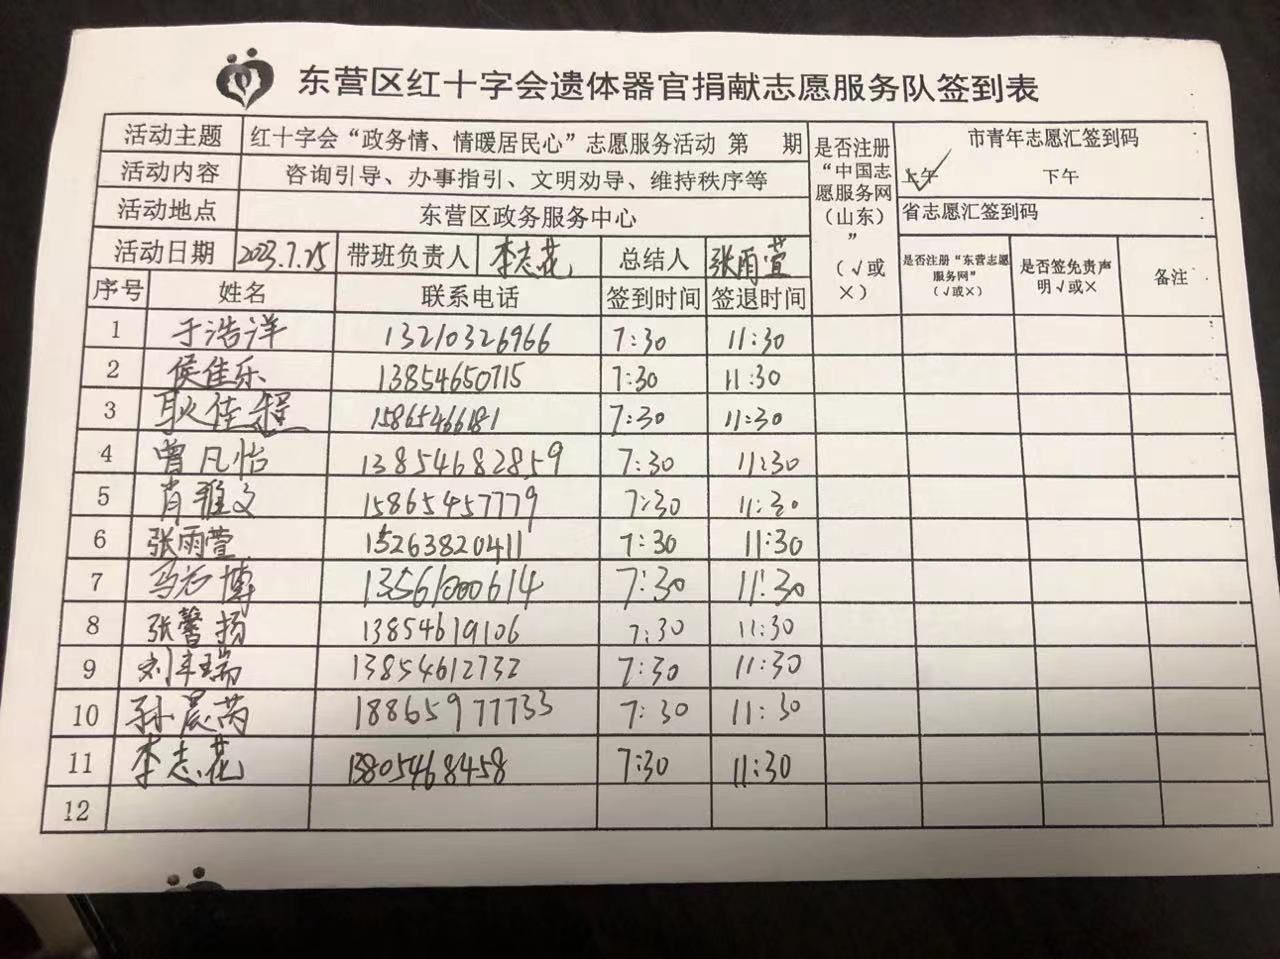 东营区红十字会遗体器官捐献志愿服务队签到表
活动主题 红十字会“政务情、情暖居民心”志愿服务活动 第 期
活动内容 咨询引导、办事指引、文明劝导、维持秩序等
活动地点 东营区政务服务中心
活动日期 2023.7.25 带班负责人 李志花 总结人 张雨萱
是否注册“中国志愿服务网（山东）”（√或×）
市青年志愿汇签到码
上午 下午
省志愿汇签到码
序号 姓名 联系电话 签到时间 签退时间 是否注册“东营志愿服务网”（√或×） 是否签免责声明√或× 备注
1 于浩洋 13210326966 7:30 11:30
2 侯佳乐 13854650715 7:30 11:30
3 耿佳程 15865466181 7:30 11:30
4 曾凡怡 13854682859 7:30 11:30
5 肖雅文 15865457779 7:30 11:30
6 张雨萱 15263820411 7:30 11:30
7 13561000614 7:30 11:30
8 张馨扬 13854619106 7:30 11:30
9 13854612732 7:30 11:30
10 孙晨芮 18865977733 7:30 11:30
11 李志花 13805468458 7:30 11:30
12